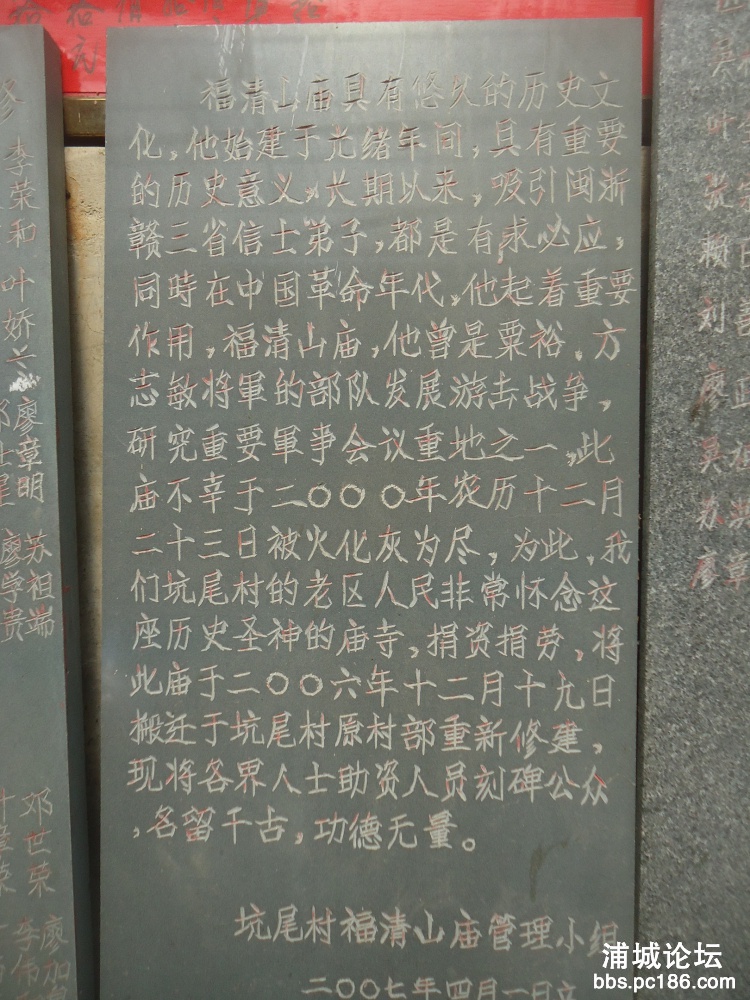 福清山庙具有悠久的历史文
化,他始建于光绪年间,具有重要
的历史意义。长期以来,吸引闽浙
赣三省信士弟子,都是有求必应,
同時在中国革命年代,他起着重要
作用,福清山庙,他曾是粟裕、方
志敏将軍的部队发展游击战争,
研究重要軍事会议重地之一,此
庙不幸于二〇〇〇年农历十二月
二十三日被火化灰为尽,为此,我
们坑尾村的老区人民非常怀念这
座历史圣神的庙寺,捐资捐劳,将
此庙于二〇〇六年十二月十九日
搬迁于坑尾村原村部重新修建,
现将各界人士助资人员刻碑公众
,名留千古,功德无量。
坑尾村福清山庙管理小组
二〇〇七年四月一日立
李荣和
叶娇兰
廖章明
苏祖端
廖学贵
邓世荣
李伟
廖加
吴
叶
张
赖
刘
廖
吴
苏
廖
浦城论坛
bbs.pc186.com